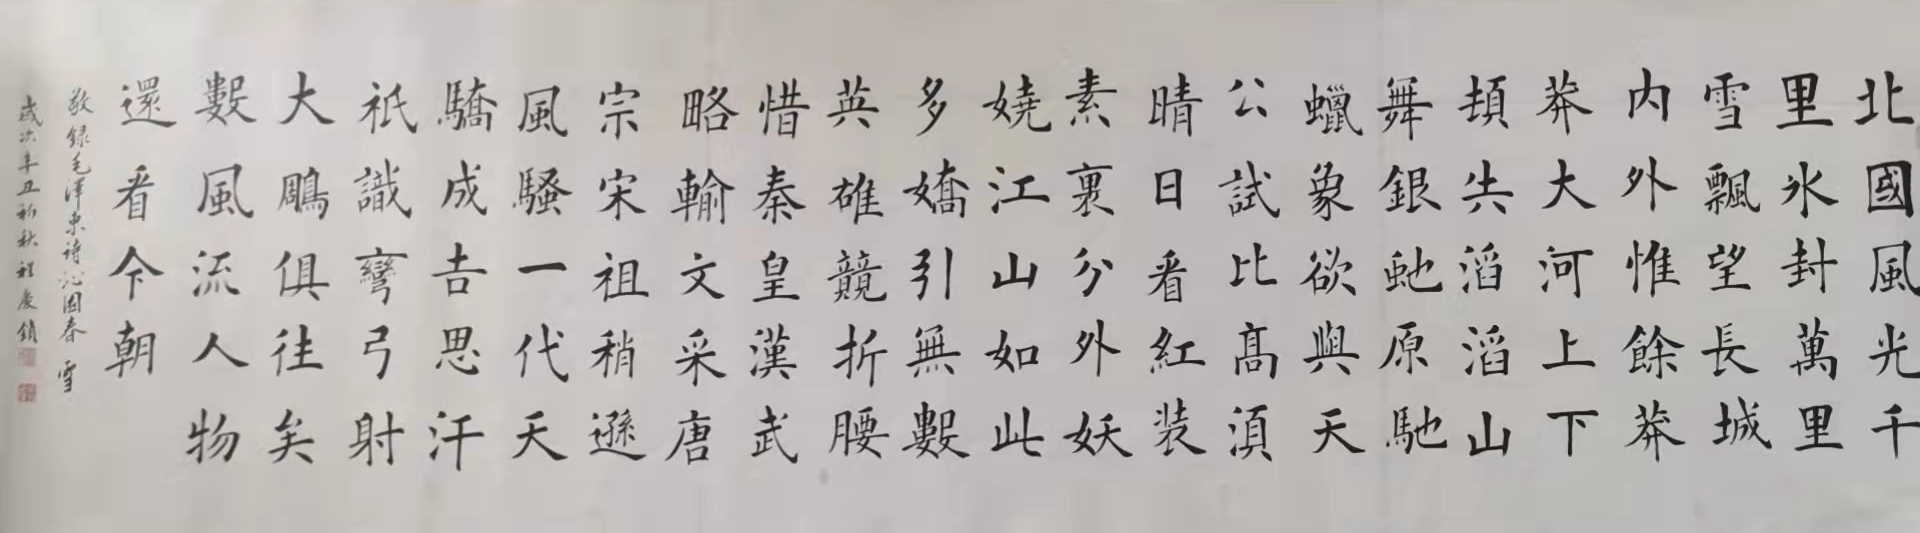 北國風光千
里氷封萬里
雪飄望長城
内外惟餘莽
莽大河上下
頓失滔滔山
舞銀虵原馳
蠟象欲與天
公試比髙須
晴日看紅装
素裹分外妖
嬈江山如此
多嬌引無數
英雄競折腰
惜秦皇漢武
略輸文采唐
宗宋祖稍遜
風騷一代天
驕成吉思汗
祇識彎弓射
大鵰俱往矣
數風流人物
還看今朝
敬録毛澤東詩沁園春 雪
歲次辛丑初秋程慶鎖